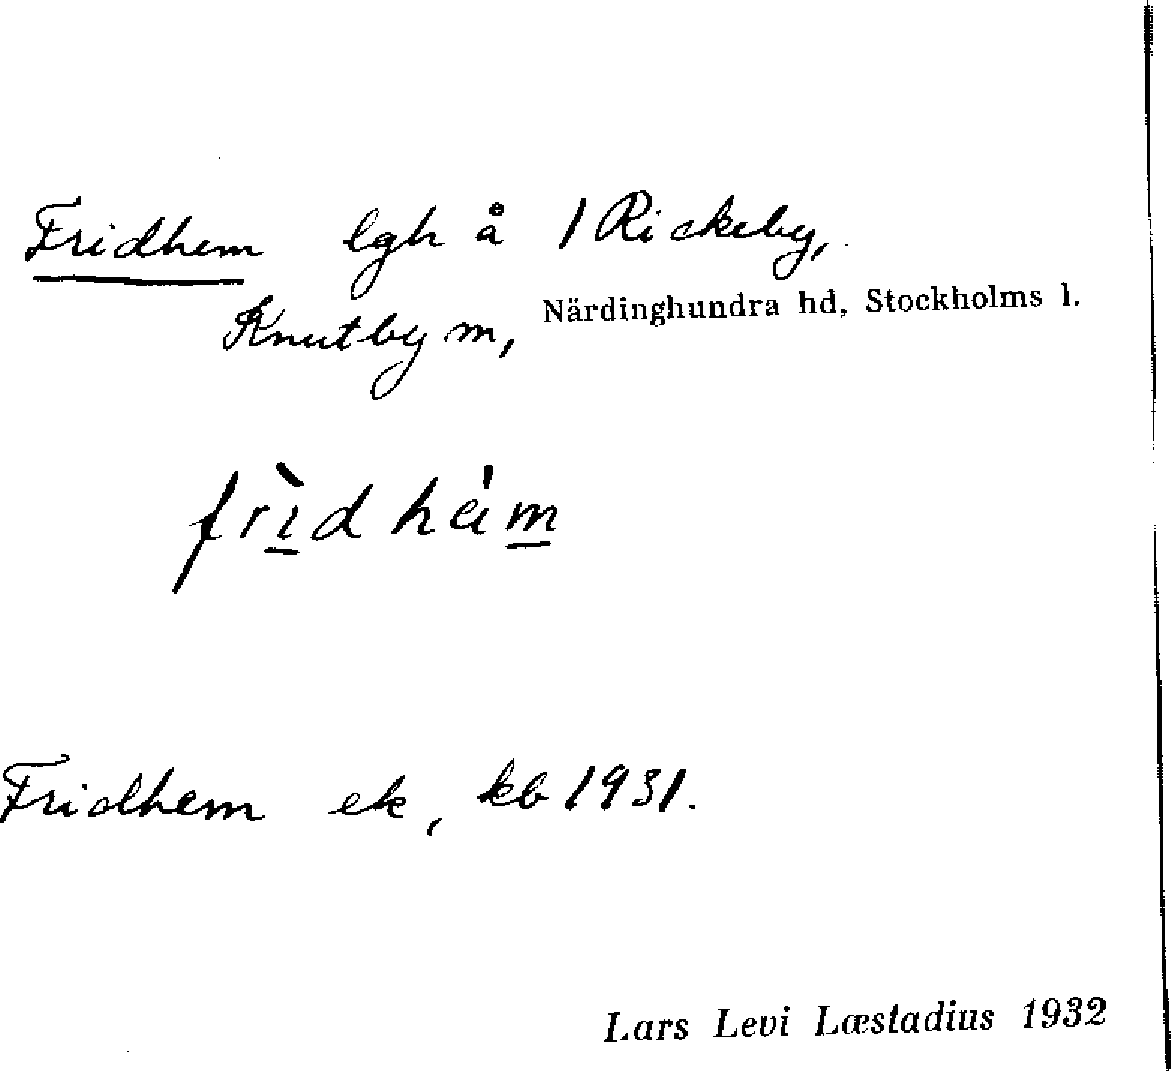 Fridhem lgh å 1 Rickeby,
Knutby m, Närdinghundra hd, Stockholms l.
frìdhèm
Fridhem ek, kb 1931.
Lars Levi Læstadius 1932